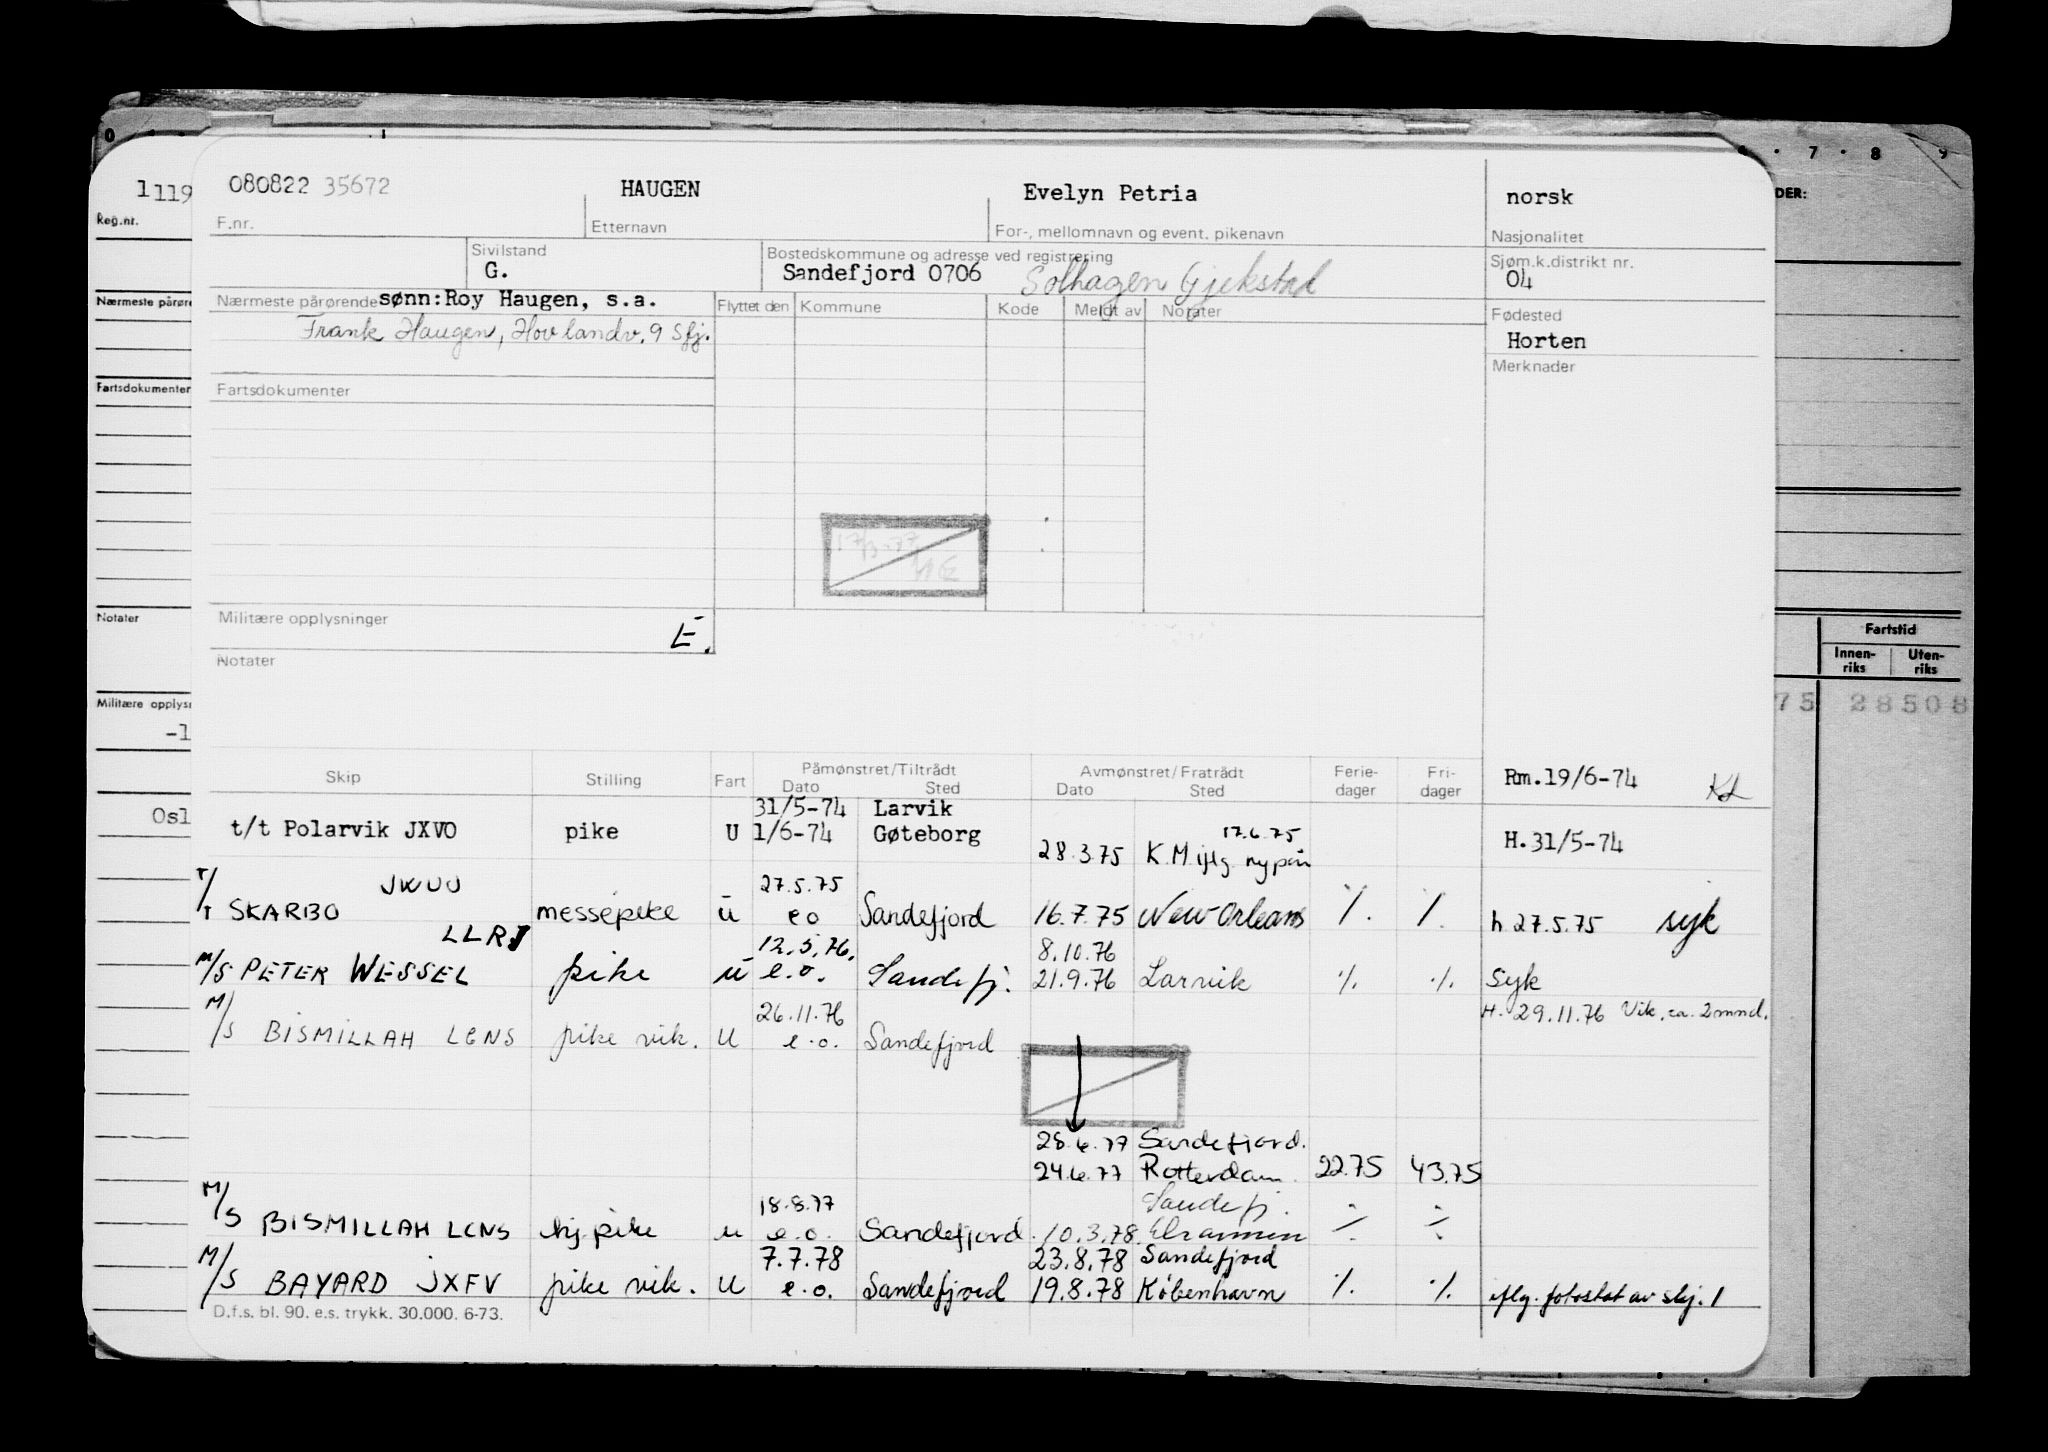 080822 35672 HAUGEN Evelyn Petria norsk
F.nr. Etternavn For-, mellomnavn og event. pikenavn Nasjonalitet
Sivilstand Bostedskommune og adresse ved registrering Sjøm.k.distrikt nr.
G. Sandefjord 0706 Solhagen Gjekstad 04
Nærmeste pårørende sønn:Roy Haugen, s.a. Flyttet den Kommune Kode Meldt av Notater Fødested
Frank Haugen, Hovlandv. 9 Sfj. Horten
Merknader
Fartsdokumenter
Militære opplysninger E.
Notater
Skip Stilling Fart Påmønstret/Tiltrådt Avmønstret/Fratrådt Ferie- Fri- Rm.19/6-74 KL
Dato Sted Dato Sted dager dager
31/5-74 Larvik
t/t Polarvik JXVO pike U 1/6-74 Gøteborg 28.3.75 K.M. iflg. ny påm 17.6.75 H.31/5-74
JWUO 27.5.75
T/T SKARBO messepike u eo Sandefjord 16.7.75 New Orleans ./. ./. h 27.5.75 syk
LLRJ 12.5.76. 8.10.76
M/S PETER WESSEL pike u e.o. Sandefj. 21.9.76 Larvik ./. ./. Syk
26.11.76 H. 29.11.76 Vik. ca. 2 mnd.
M/S BISMILLAH LCNS pike vik. U e.o. Sandefjord
28.6.77 Sandefjord.
24.6.77 Rotterdam 22.75 43.75
18.8.77 Sandefj.
M/S BISMILLAH LCNS hj. pike u e.o. Sandefjord 10.3.78 ./. ./.
7.7.78 23.8.78 Sandefjord
M/S BAYARD JXFV pike vik. U e.o. Sandefjord 19.8.78 København ./. ./. iflg. fotostat av skj. 1
D.f.s. bl. 90. e.s. trykk. 30.000. 6-73.
1119
Reg.nr.
Nærmeste pårøre
Fartsdokumenter
Notater
Militære opplys
-1
Osl
7 8 9
DER:
Fartstid
Innen-riks Uten-riks
75 28508